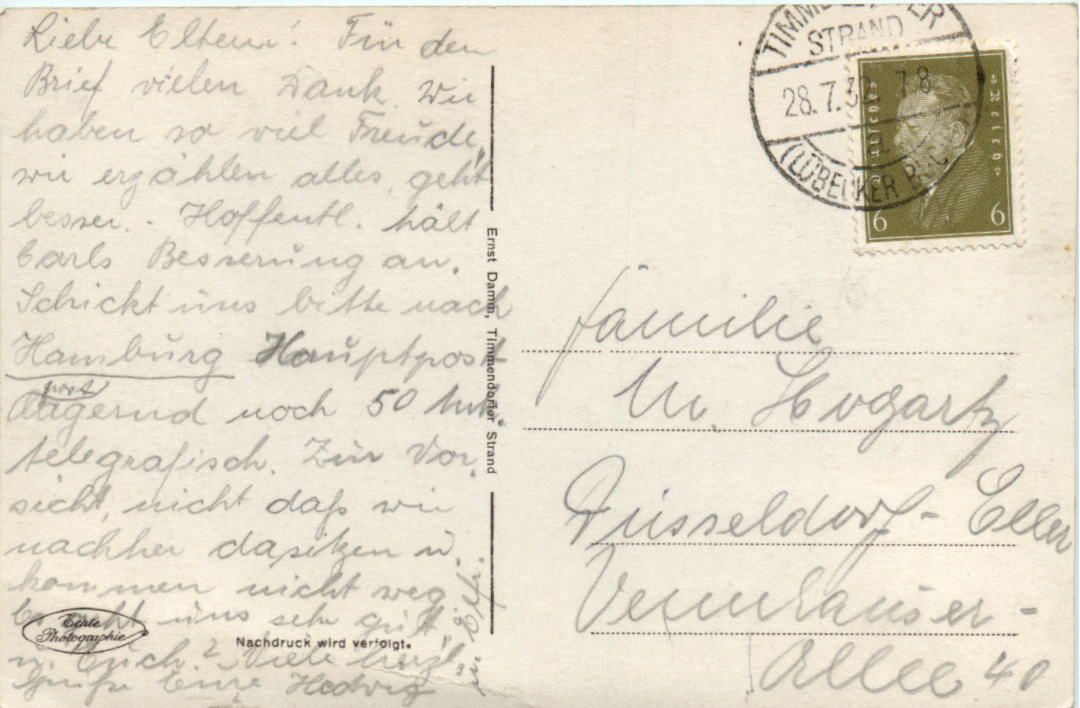 Liebe Eltern! Für den
Brief vielen Dank. Wir
haben so viel Freude,
wir erzählen alles, geht
besser. - Hoffentl. hält
Carls Besserung an.
Schickt uns bitte nach
Hamburg Hauptpost
post
lagernd noch 50 Mk.
telegrafisch. Zur Vor-
sicht, nicht daß wir
nachher dasitzen u.
kommen nicht weg.
Es geht uns sehr gut,
u. Euch? Viele herzl.
Grüße Eure Hedwig
Echte
Photographie
Nachdruck wird verfolgt.
Ernst Damm, Timmendorfer Strand
TIMMENDORFER
STRAND
28.7.32. 7-8
(LÜBECKER BUCHT)
Deutsches Reich
6 6
Familie
W. Hogartz
Düsseldorf-Eller
Vennhauser-
Allee 40